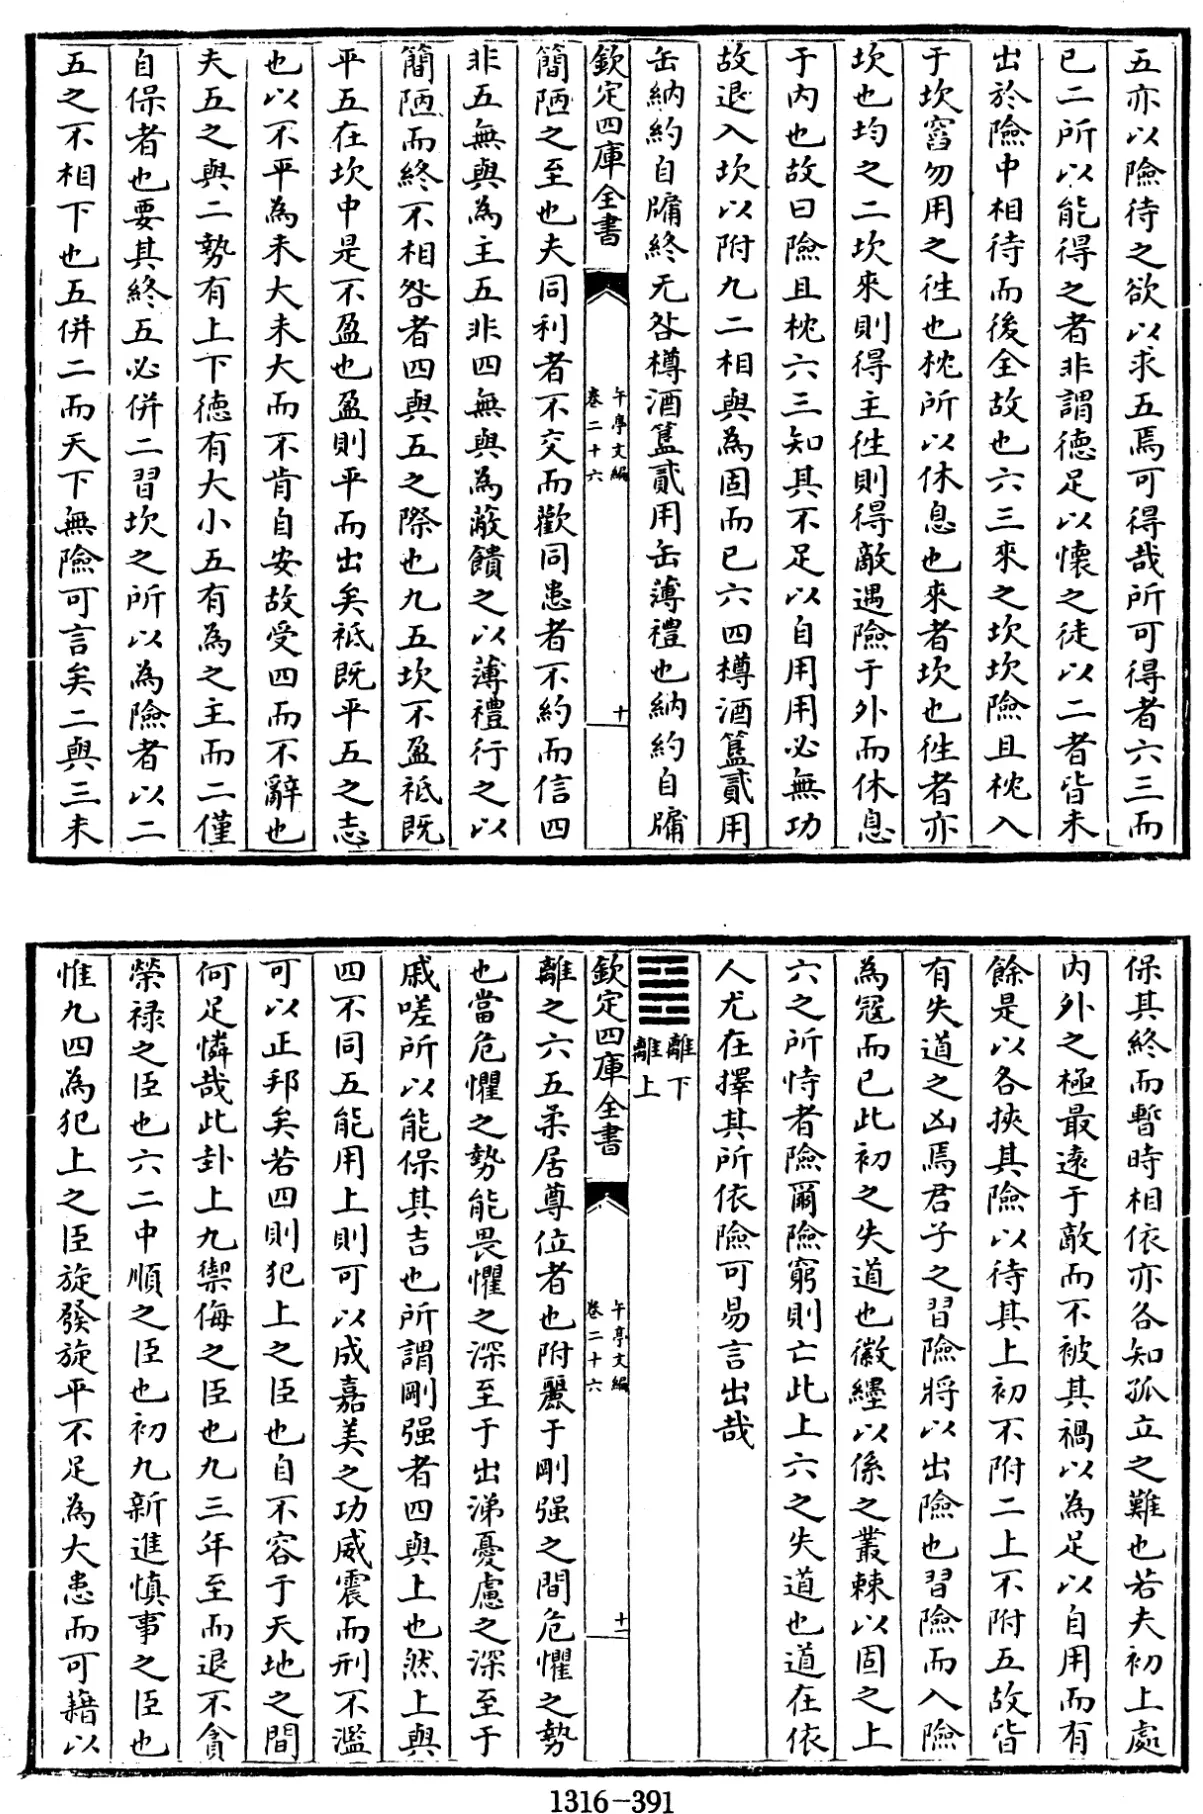 五亦以險待之欲以求五焉可得哉所可得者六三而
已二所以能得之者非謂德足以懷之徒以二者皆未
出於險中相待而後全故也六三來之坎坎險且枕入
于坎窞勿用之徃也枕所以休息也來者坎也徃者亦
坎也均之二坎來則得主徃則得敵遇險于外而休息
于内也故曰險且枕六三知其不足以自用用必無功
故退入坎以附九二相與為固而已六四樽酒簋貳用
缶納約自牖終无咎樽酒簋貳用缶薄禮也納約自牖
欽定四庫全書
午亭文編
卷二十六
十
簡陋之至也夫同利者不交而歡同患者不約而信四
非五無與為主五非四無與為蔽饋之以薄禮行之以
簡陋而終不相咎者四與五之際也九五坎不盈祗既
平五在坎中是不盈也盈則平而出矣祗既平五之志
也以不平為未大未大而不肯自安故受四而不辭也
夫五之與二勢有上下德有大小五有為之主而二僅
自保者也要其終五必併二習坎之所以為險者以二
五之不相下也五併二而天下無險可言矣二與三未
保其終而暫時相依亦各知孤立之難也若夫初上處
内外之極最遠于敵而不被其禍以為足以自用而有
餘是以各挾其險以待其上初不附二上不附五故皆
有失道之凶焉君子之習險將以出險也習險而入險
為寇而已此初之失道也徽纆以係之叢棘以固之上
六之所恃者險爾險窮則亡此上六之失道也道在依
人尤在擇其所依險可易言出哉
離下
離上
欽定四庫全書
午亭文編
卷二十六
十一
離之六五柔居尊位者也附麗于剛强之間危懼之勢
也當危懼之勢能畏懼之深至于出涕憂慮之深至于
戚嗟所以能保其吉也所謂剛强者四與上也然上與
四不同五能用上則可以成嘉美之功威震而刑不濫
可以正邦矣若四則犯上之臣也自不容于天地之間
何足憐哉此卦上九禦侮之臣也九三年至而退不貪
榮祿之臣也六二中順之臣也初九新進慎事之臣也
惟九四為犯上之臣旋發旋平不足為大患而可藉以
1316-391